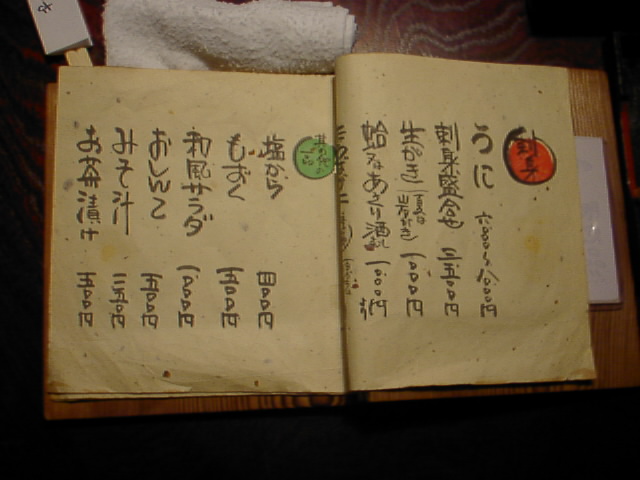 刺身
うに 六〇〇〇〜八〇〇〇円
刺身盛合せ 三五〇〇円
生がき 岩がき 一〇〇〇円
蛤又はあさり酒蒸し 一〇〇〇円
その他の一品
塩から 四〇〇円
もずく 五〇〇円
和風サラダ 一〇〇〇円
おしんこ 五〇〇円
みそ汁 三五〇円
お茶漬け 五〇〇円